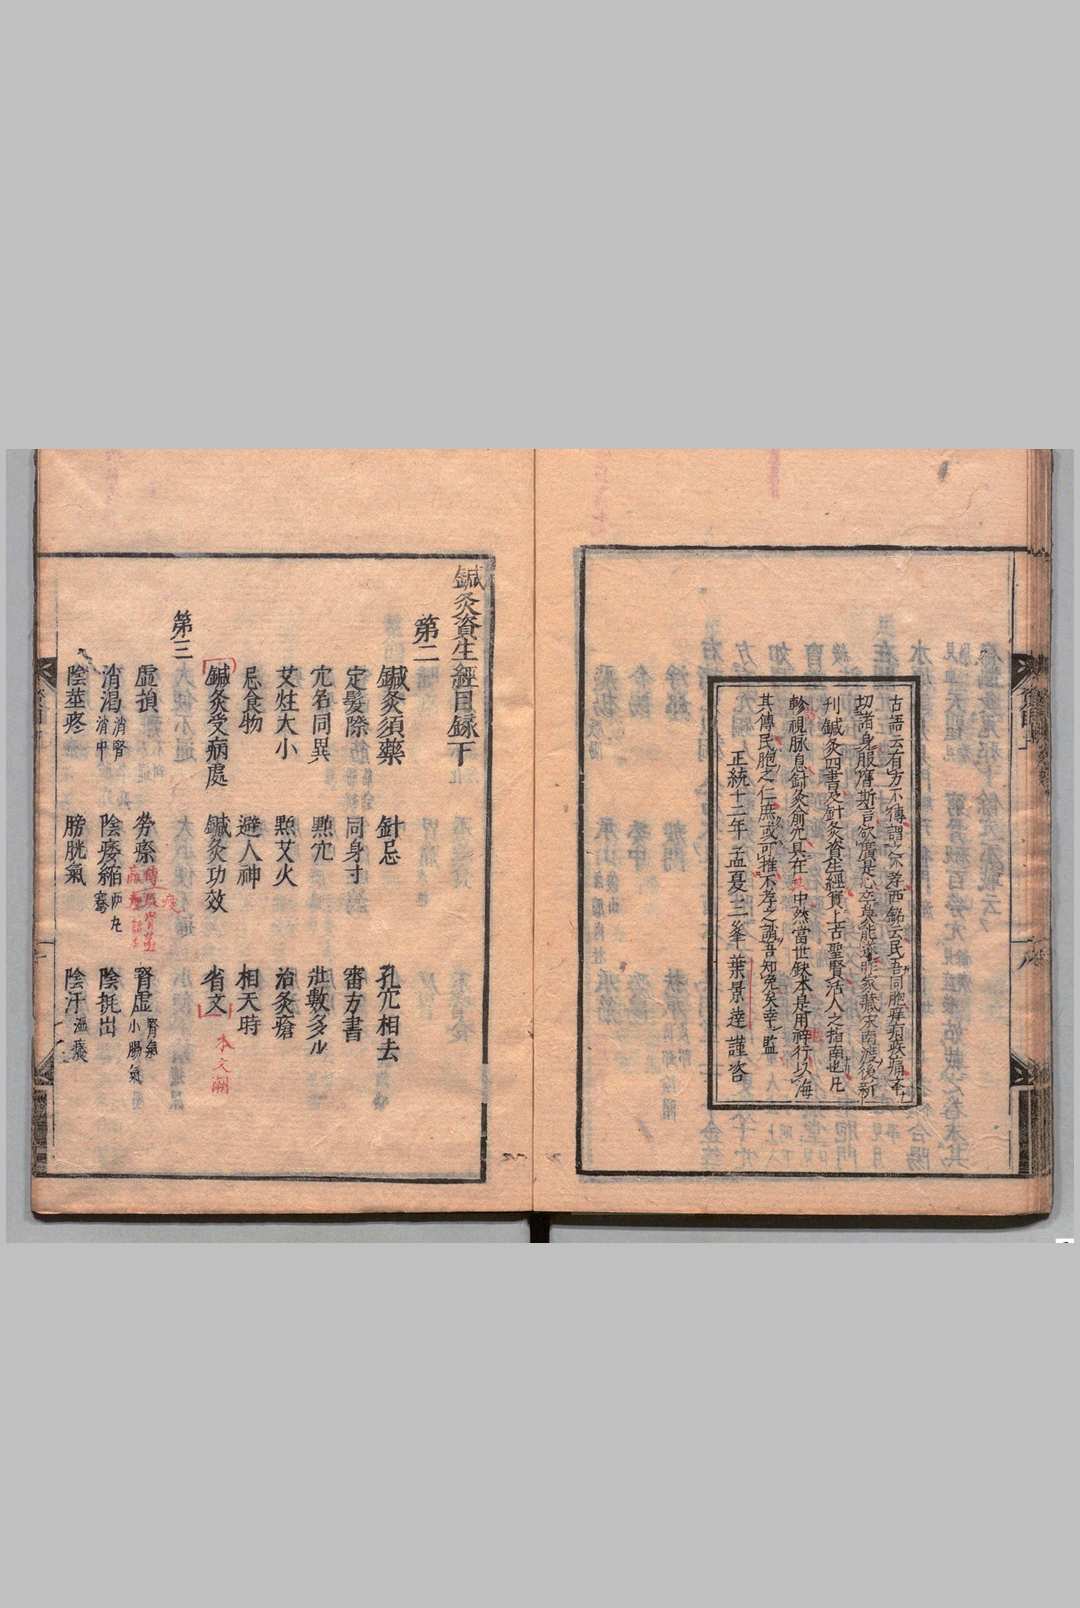 古語云有方不傳謂之不孝西銘云民吾同胞痒疴疾痛本
切諸身服膺斯言欲廣是心卒莫能遂昨家藏宋南渡後新
刊鍼灸四書及針灸資生經實上古聖賢活人之指南也凡
軫視脉息針灸俞穴具在其中然當世鈌本是用梓行以海
其傳民胞之仁庶或可推不孝之誚吾知免矣幸監
正統十二年孟夏三峯葉景達謹咨
鍼灸資生經目錄下
第二
鍼灸須藥 針忌 孔穴相去
定髮際 同身寸 審方書
穴名同異 㸃穴 壯數多少
艾炷大小 㸃艾火 治灸瘡
忌食物 避人神 相天時
鍼灸受病處 鍼灸功效 省文
本文闕
第三
虛損 勞瘵 腎虛 腎氣 小腸氣
消渴 消腎 消中 陰痿縮 兩丸騫 陰挺出
陰莖疼 膀胱氣 陰汗 濕癢